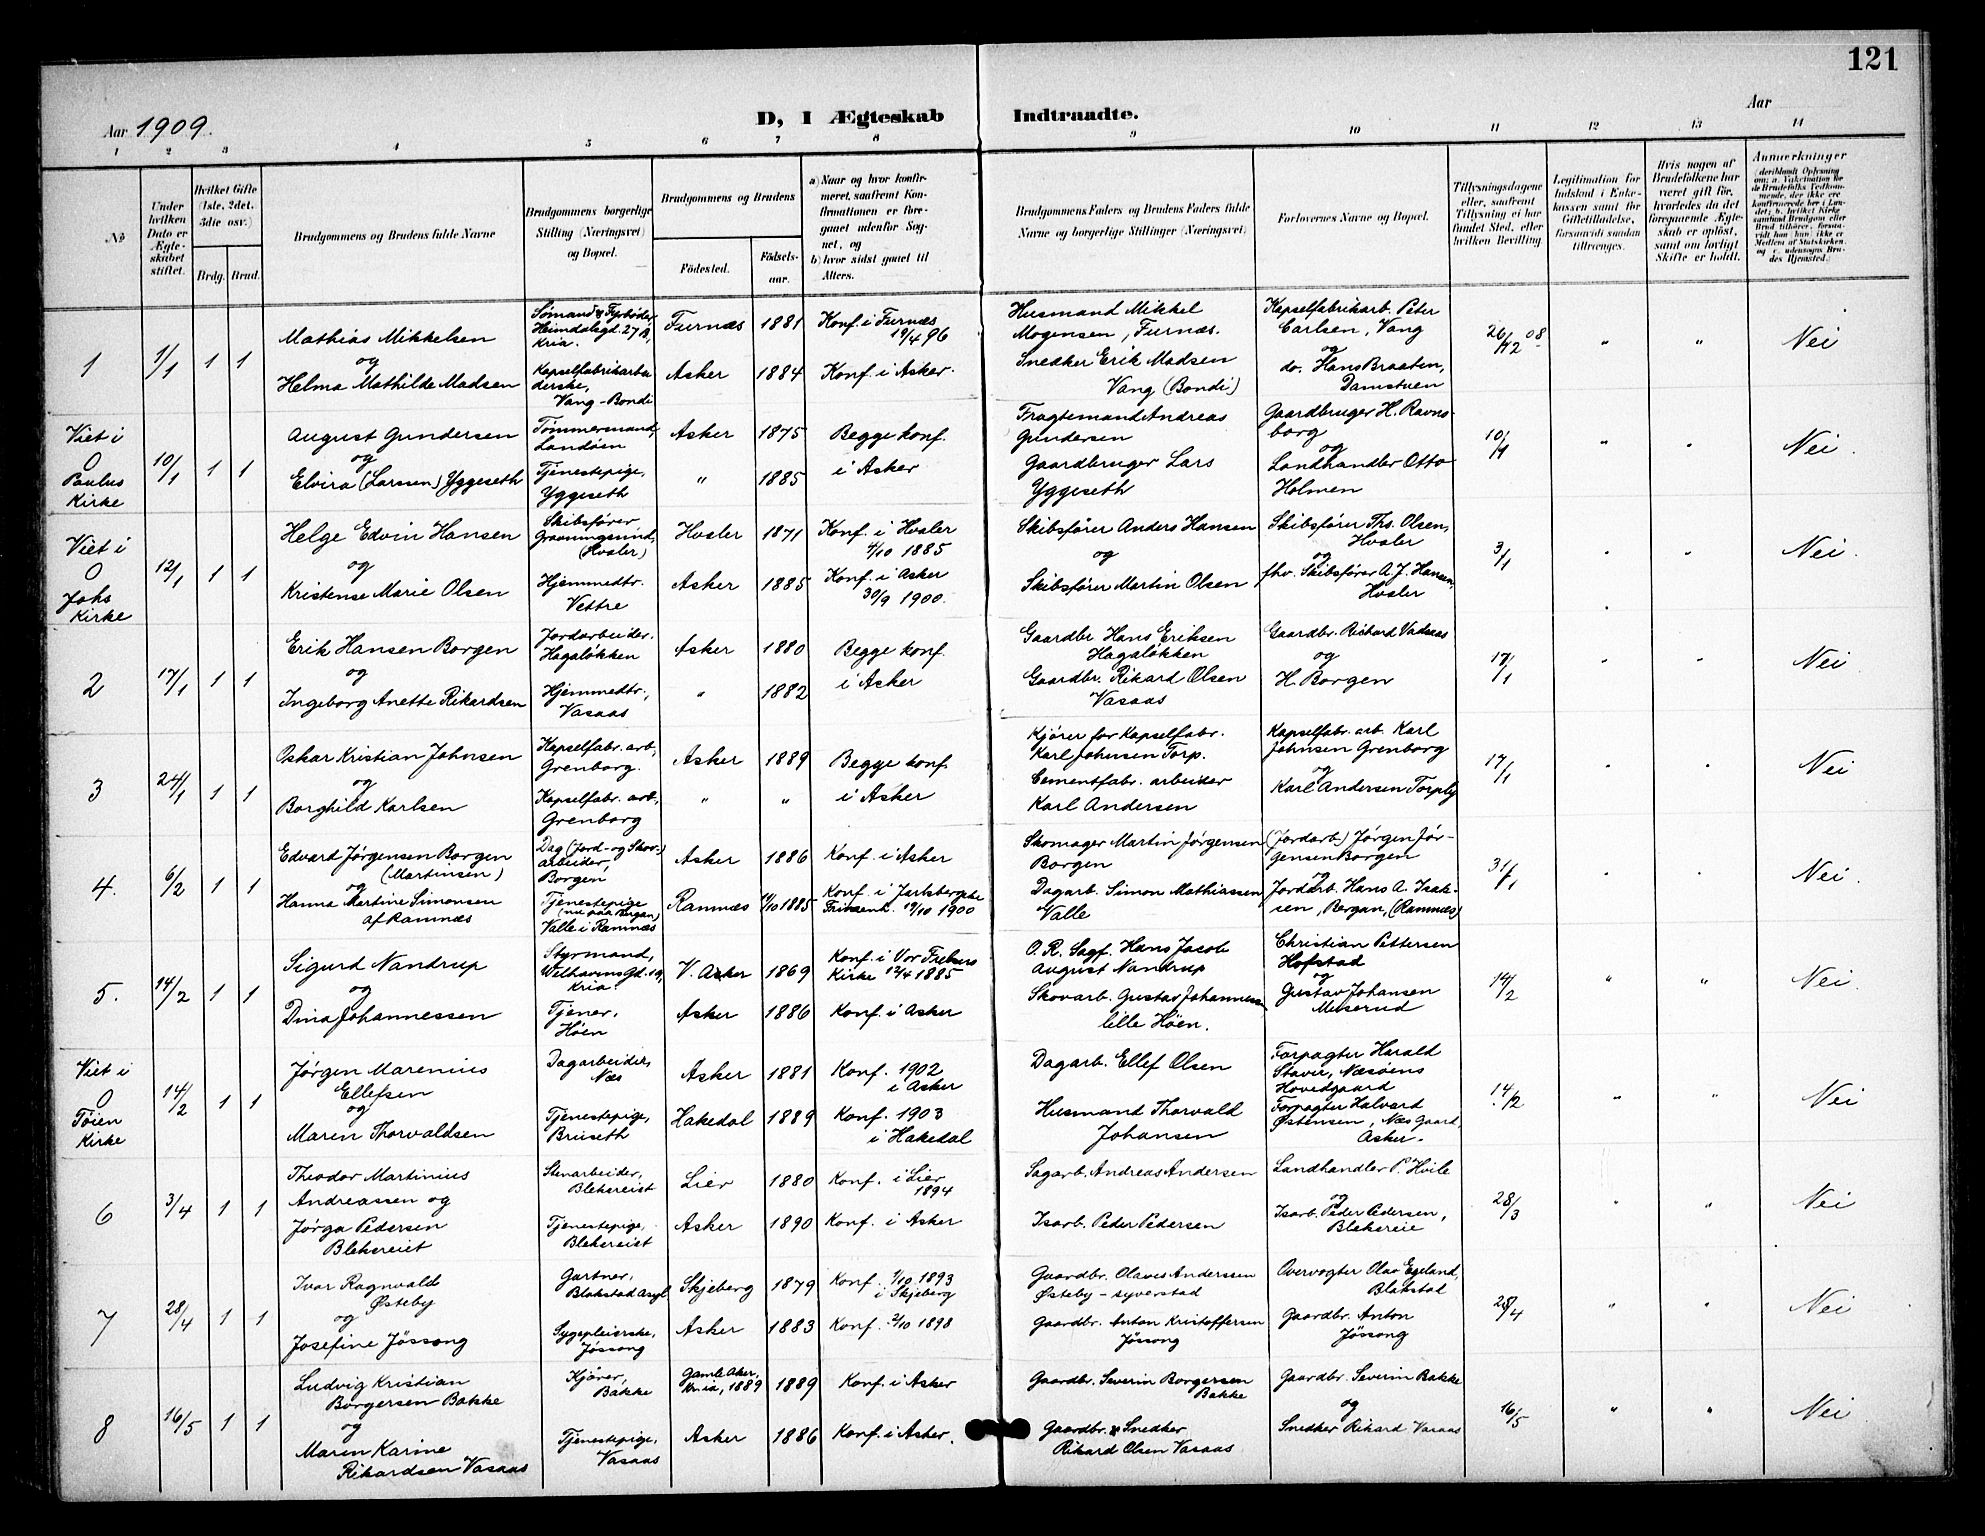 121
Aar 1909.
D, I Ægteskab Indtraadte.
Aar
1 2 3 4 5 6 7 8 9 10 11 12 13 14
No
Under hvilken Dato er Ægteskabet stiftet.
Hvilket Gifte (1ste, 2det, 3die osv.)
Brdg. Brud.
Brudgommens og Brudens fulde Navne
Brudgommens borgerlige Stilling (Næringsvei) og Bopæl.
Brudgommens og Brudens
Födested.
Födselsaar.
a) Naar og hvor konfirmeret, saafremt Konfirmationen er foregaaet udenfor Sognet, og
b) hvor sidst gaaet til Alters.
Brudgommens Faders og Brudens Faders fulde Navne og borgerlige Stillinger (Næringsvei)
Forlovernes Navne og Bopæl.
Tillysningsdagene eller, saafremt Tillysning ei har fundet Sted, efter hvilken Bevilling.
Legitimation for Indskud i Enkekassen samt for Giftetilladelse, forsaavidt saadan tiltrænges.
Hvis nogen af Brudefolkene har været gift før, hvorledes da det foregaaende Ægteskab er oplöst, samt om lovligt Skifte er holdt.
Anmerkninger
1
1/1
1 1
Mathias Mikkelsen
og
Helma Mathilde Madsen
Sømand & Fyrbøder
Heimdalsgd. 27 B,
Kria.
Kapselfabrikarbei
derske,
Vang - Bondi
Furnæs 1881
Asker 1884
Konf. i Furnæs
19/4 96
Konf. i Asker.
Husmand Mikkel
Mogensen, Furnæs.
Snedker Erik Madsen
Vang (Bondi)
Kapselfabrikarb. Peter
Carlsen, Vang
og
do. Hans Braaten,
Damstuen
26/12 08
" "
Nei
Viet i
O
Paulus
Kirke
10/1
1 1
August Gundersen
og
Elvira (Larssen) Yggeseth
Tømmermand,
Landøen
Tjenestepige,
Yggeseth
Asker 1875
" 1885
Begge konf.
i Asker
Fragtemand Andreas
Gundersen
Gaardbruger Lars
Yggeseth
Gaardbruger H. Ravns-
borg
og
Landhandler Otto
Holmen
10/1
" "
Nei.
Viet i
O
Johs
Kirke
12/1
1 1
Helge Edvin Hansen
og
Kristense Marie Olsen
Skibsfører
Gravningsund,
(Hvaler)
Hjemmedtr.
Vettre
Hvaler 1871
Asker 1885
Konf. i Hvaler
4/10 1885
Konf. i Asker
30/9 1900.
Skibsfører Anders Hansen
og
Skibsfører Martin Olsen
Skibsfører Ths. Olsen,
Hvaler
og
fhv. Skibsfører A. J. Hansen,
Hvaler
3/1
" "
Nei.
2
17/1
1 1
Erik Hansen Borgen
og
Ingeborg Anette Rikardsen
Jordarbeider.
Hagaløkken
Hjemmedtr.,
Vasaas
Asker 1880
" 1882
Begge konf.
i Asker
Gaardbr Hans Eriksen
Hagaløkken
Gaardbr. Rikard Olsen
Vasaas
Gaardbr. Rikhard Vadsaas
og
H. Borgen
17/1
" "
Nei
3
24/1
1 1
Oskar Kristian Johnsen
og
Borghild Karlsen
Kapselfabr. arb.,
Grenborg.
Kapselfabr. arb.,
Grenborg
Asker 1889
" "
Begge konf
i Asker
Kjører for Kapselfabr.
Karl Johnsen Torp.
Cementfabr. arbeider
Karl Andersen
Kapselfabr. arb. Karl
Johnsen Grenborg
og
Karl Andersen Torpby
17/1
" "
Nei
4.
6/2
1 1
Edvard Jørgensen Borgen
(Martinsen)
og
Hanna Martine Simonsen
af Ramnæs
Dag (Jord- og Skov-)
arbeider,
Borgen
Tjenestepige
(nu paa Bergan)
Valle i Ramnæs
Asker 1886
Ramnæs 14/10 1885
Konf. i Asker
Konf. i Jarlsbergske
19/10 1900
Skomager Martin Jørgensen
Borgen
Dagarb. Simon Mathiassen
Valle
(Jordarb.) Jørgen Jør-
gensen Borgen
og
Jordarb. Hans A. Isak-
sen, Bergan, (Ramnæs)
31/1
Nei.
5.
14/2
1 1
Sigurd Nandrup
og
Dina Johannessen
Styrmand,
Welhavens Gd. 19,
Kria.
Tjener,
Höen
V. Aker 1869
Asker 1886
Konf. i Vor Frelsers
Kirke 12/4 1885
Konf. i Asker
O. R. Sagf. Hans Jacob
August Nandrup
Skovarb. Gustav Johannessen
lille Höen.
Christian Pettersen
Hofstad
og
Gustav Johansen
Meserud
14/2
" "
Nei.
Viet i
O
Tøien
Kirke
14/2
1 1
Jørgen Marenius
Ellefsen
og
Maren Thorvaldsen
Dagarbeider,
Næs
Tjenestepige,
Bruseth
Asker 1881
Hakedal 1889
Konf. 1902
i Asker
Konf. 1903
i Hakedal
Dagarb. Ellef Olsen
Husmand Thorvald
Johansen
Forpagter Harald
Stavir, Næsøens
Hovedgaard
Forpagter Halvard
Østensen, Næs Gaard,
Asker.
14/2
" "
Nei
6
3/4
1 1
Theodor Martinius
Andreassen og
Jørga Pedersen
Bleksreiet
Stenarbeider,
Bleksreist
Tjenestepige,
Bleksreist
Lier 1880
Asker 1890
Konf. i Lier
1894
Konf. i Asker
Sagarb. Andreas Andersen
Isarb. Peder Pedersen
Landhandler P. Hvile
og
Isarb. Peder Pedersen,
Bleksreie
28/3
" "
Nei
7
28/4
1 1
Ivar Ragnvald
Østeby
og
Josefine Jössong
Gartner,
Blakstad Asyl
Sygepleierske,
Jössong
Skjeberg 1879
Asker 1883
Konf. 1/10 1893
i Skjeberg
Konf. 2/10 1898
Gaardbr. Olaves Anderssen
Østeby - syverstad
Gaardbr. Anton Kristoffersen
Jössong
Overvogter Olav Egeland,
Blakstad
Gaardbr. Anton
Jössong
25/4
" "
Nei
8
16/5
1 1
Ludvig Kristian
Borgersen Bakke
og
Maren Karine
Rikardsen Vasaas
Kjører,
Bakke
Tjenestepige,
Vasaas
Gamle Aker,
Kria, 1889 1889
Asker 1886
Konf. i Asker
Konf. i Asker.
Gaardbr. Severin Borgersen
Bakke
Gaardbr. & Snedker
Rikard Olsen Vasaas
Gaardbr. Severin Bakke
og
Snedker Rikard Vasaas
16/5
" "
Nei